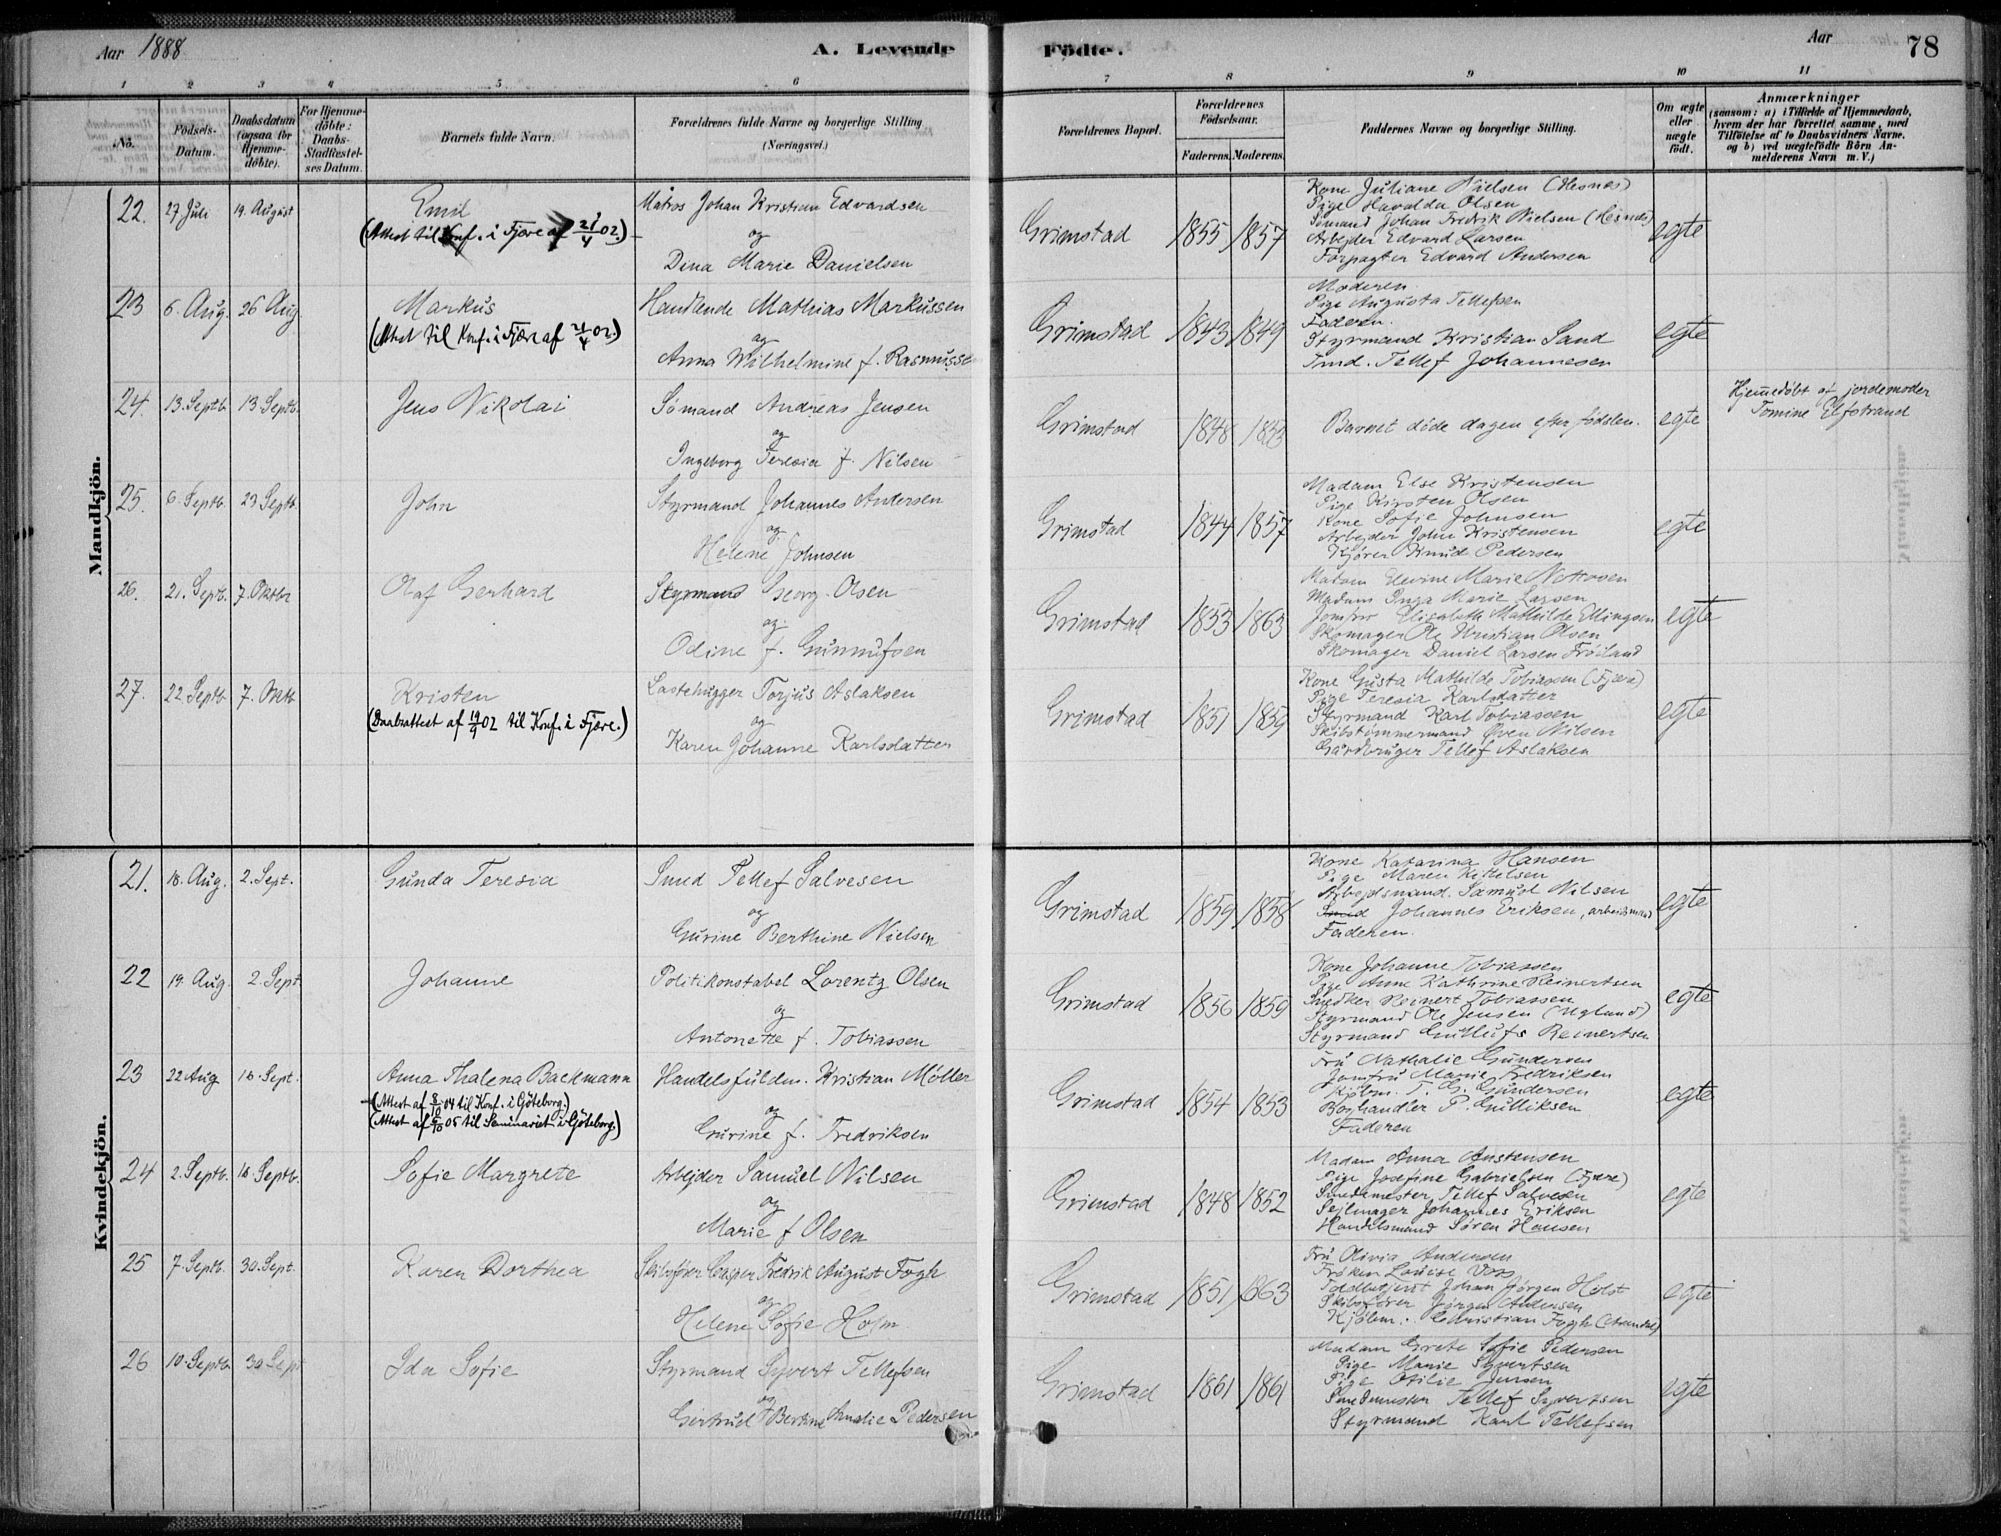 Aar 1888
A. Levende Födte.
Aar
78
1 2 3 4 5 6 7 8 9 10 11
No.
Födsels-Datum.
Daabsdatum (ogsaa for Hjemme-döbte).
For Hjemme-döbte: Daabs-Stadfæstelses Datum.
Barnets fulde Navn.
Forældrenes fulde Navne og borgerlige Stilling (Næringsvei.)
Forældrenes Bopæl.
Forældrenes Födselsaar.
Faderens. Moderens.
Faddernes Navne og borgerlige Stilling.
Om ægte eller uægte födt.
Anmærkninger
(saasom: a) i Tilfælde af Hjemmedaab, hvem der har forrettet samme, med Tilföielse af to Daabsvidners Navne, og b) ved uægtefödte Börn Anmelderens Navn m. V.)
Mandkjön.
22. 27 Juli 19. August Emil
(Attest til Konf. i Fjære af 21/4 02.)
Matros Johan Kristian Edvardsen
og
Dina Marie Danielsen
Grimstad 1855 1857
Kone Juliane Nielsen (Hesnes)
Pige Havalda Olsen
Sömand Johan Fredrik Nielsen (Hesnes)
Arbejder Edvard Larsen
Forpagter Edvard Andersen
egte
23 6. Aug. 26 Aug Markus
(Attest til Konf. i Fjære af 21/4 02.)
Handlende Mathias Markussen
og
Anna Wilhelmine f. Rasmusse
Grimstad 1843 1849
Moderen.
Pige Augusta Tellefsen
Faderen.
Styrmand Kristian Sand
Tmd. Tellef Johannesen
egte
24. 13. Septb. 13. Septb. Jens Nikolai
Sömand Andreas Jensen
og
Ingeborg Teresia f. Nilsen
Grimstad 1848
Barnet döde dagen efter födslen.
egte
Hjemmedöbt af jordemoder
Tomine Elfstrand
25. 6. Septb. 23 Septb. John
Styrmand Johannes Andersen
og
Helene Johnsen
Grimstad 1844 1857
Madam Else Kristensen
Pige Kirsten Olsen
Kone Sofie Johnsen
Arbejder John Kristensen
Kjörer Knud Pedersen
egte
26. 21. Septb. 7. Oktbr Olaf Gerhard
Styrmand Georg Olsen
og
Odine f. Gunnufsen
Grimstad 1853 1863
Madam Elevine Marie
Madam Inga Marie Larsen
Jomfru Elisabeth Mathilde Ellingsen
Skomager Ole Kristian Olsen
Skomager Daniel Larsen Fröiland
egte
27. 22 Septb. 7. Oktb Kristen
(Daabsattest af 19/4 02 til Konf. i Fjære.)
Lastehugger Torjus Aslaksen
og
Karen Johanne Karlsdatter
Grimstad 1851 1859
Kone Gusta Mathilde Tobiassen (Fjære)
Pige Teresia Karlsdatter
Styrmand Karl Tobiassen
Skibstömmermand Even Nilsen
Gårdbruger Tellef Aslaksen
egte
Kvindekjön.
21. 18. Aug. 2. Sept. Gunda Teresia
Smed Tellef Salvesen
og
Gurine Berthine Nielsen
Grimstad 1859 1858
Kone Katarina Hansen
Pige Maren Kittelsen
Arbejdsmand Samuel Nilsen
Smed Johannes Eriksen, arbeidsmand
Faderen.
egte
22 19. Aug. 2. Sept Johanne
Politikonstabel Lorentz Olsen
og
Antonette f. Tobiassen
Grimstad 1856 1859
Kone Johanne Tobiassen
Pige Anne Kathrine Reinertsen
Snedker Reinert Tobiassen
Styrmand Ole Jensen (Ugland)
Styrmand Gulluf Reinertsen
egte
23 22 Aug. 16. Sept. Anna Thalena Backmann
(Attest af 8/10 04 til Konf. i Göteborg.)
(Attest af 6/10 05 til Seminariet i Göteborg.)
Handelsfuldm. Kristian Möller
og
Gurine f. Fredriksen
Grimstad 1854 1853
Fru Nathalie Gundersen
Jomfru Marie Fredriksen
Kjöbm. T. G. Gundersen
Boghandler P. Gulliksen
Faderen
egte
24 2. Septb. 16. Septb. Sofie Margrete
Arbejder Samuel Nilsen
og
Marie f Olsen
Grimstad 1848 1852
Madam Anna Austensen
Pige Josefine Gabrielsen (Fjære)
Smedemester Tellef Salvesen
Sejlmager Johannes Eriksen
Handelsmand Sören Hansen
egte
25 7. Septb. 30. Sept. Karen Dorthea
Skibsförer Casper Fredrik August Fogh
og
Helene Sofie Holm
Grimstad 1851 1863
Fru Olivia Andersen
Fröken Louise Voss
Toldbetjent Johan Jörgen Holst
Skibsförer Jörgen Andersen
Kjöbm. Christian Fogh (Arendal)
egte
26 10. Septb. 30 Sept Ida Sofie
Styrmand Syvert Tellefsen
og
Gertrud Bertine Amalie Pedersen
Grimstad 1861 1861
Madam Grete Sofie Pedersen
Pige Marie Syvertsen
Pige Otilie Jensen
Smedemester Tellef Syvertsen
Styrmand Karl Tellefsen
egte